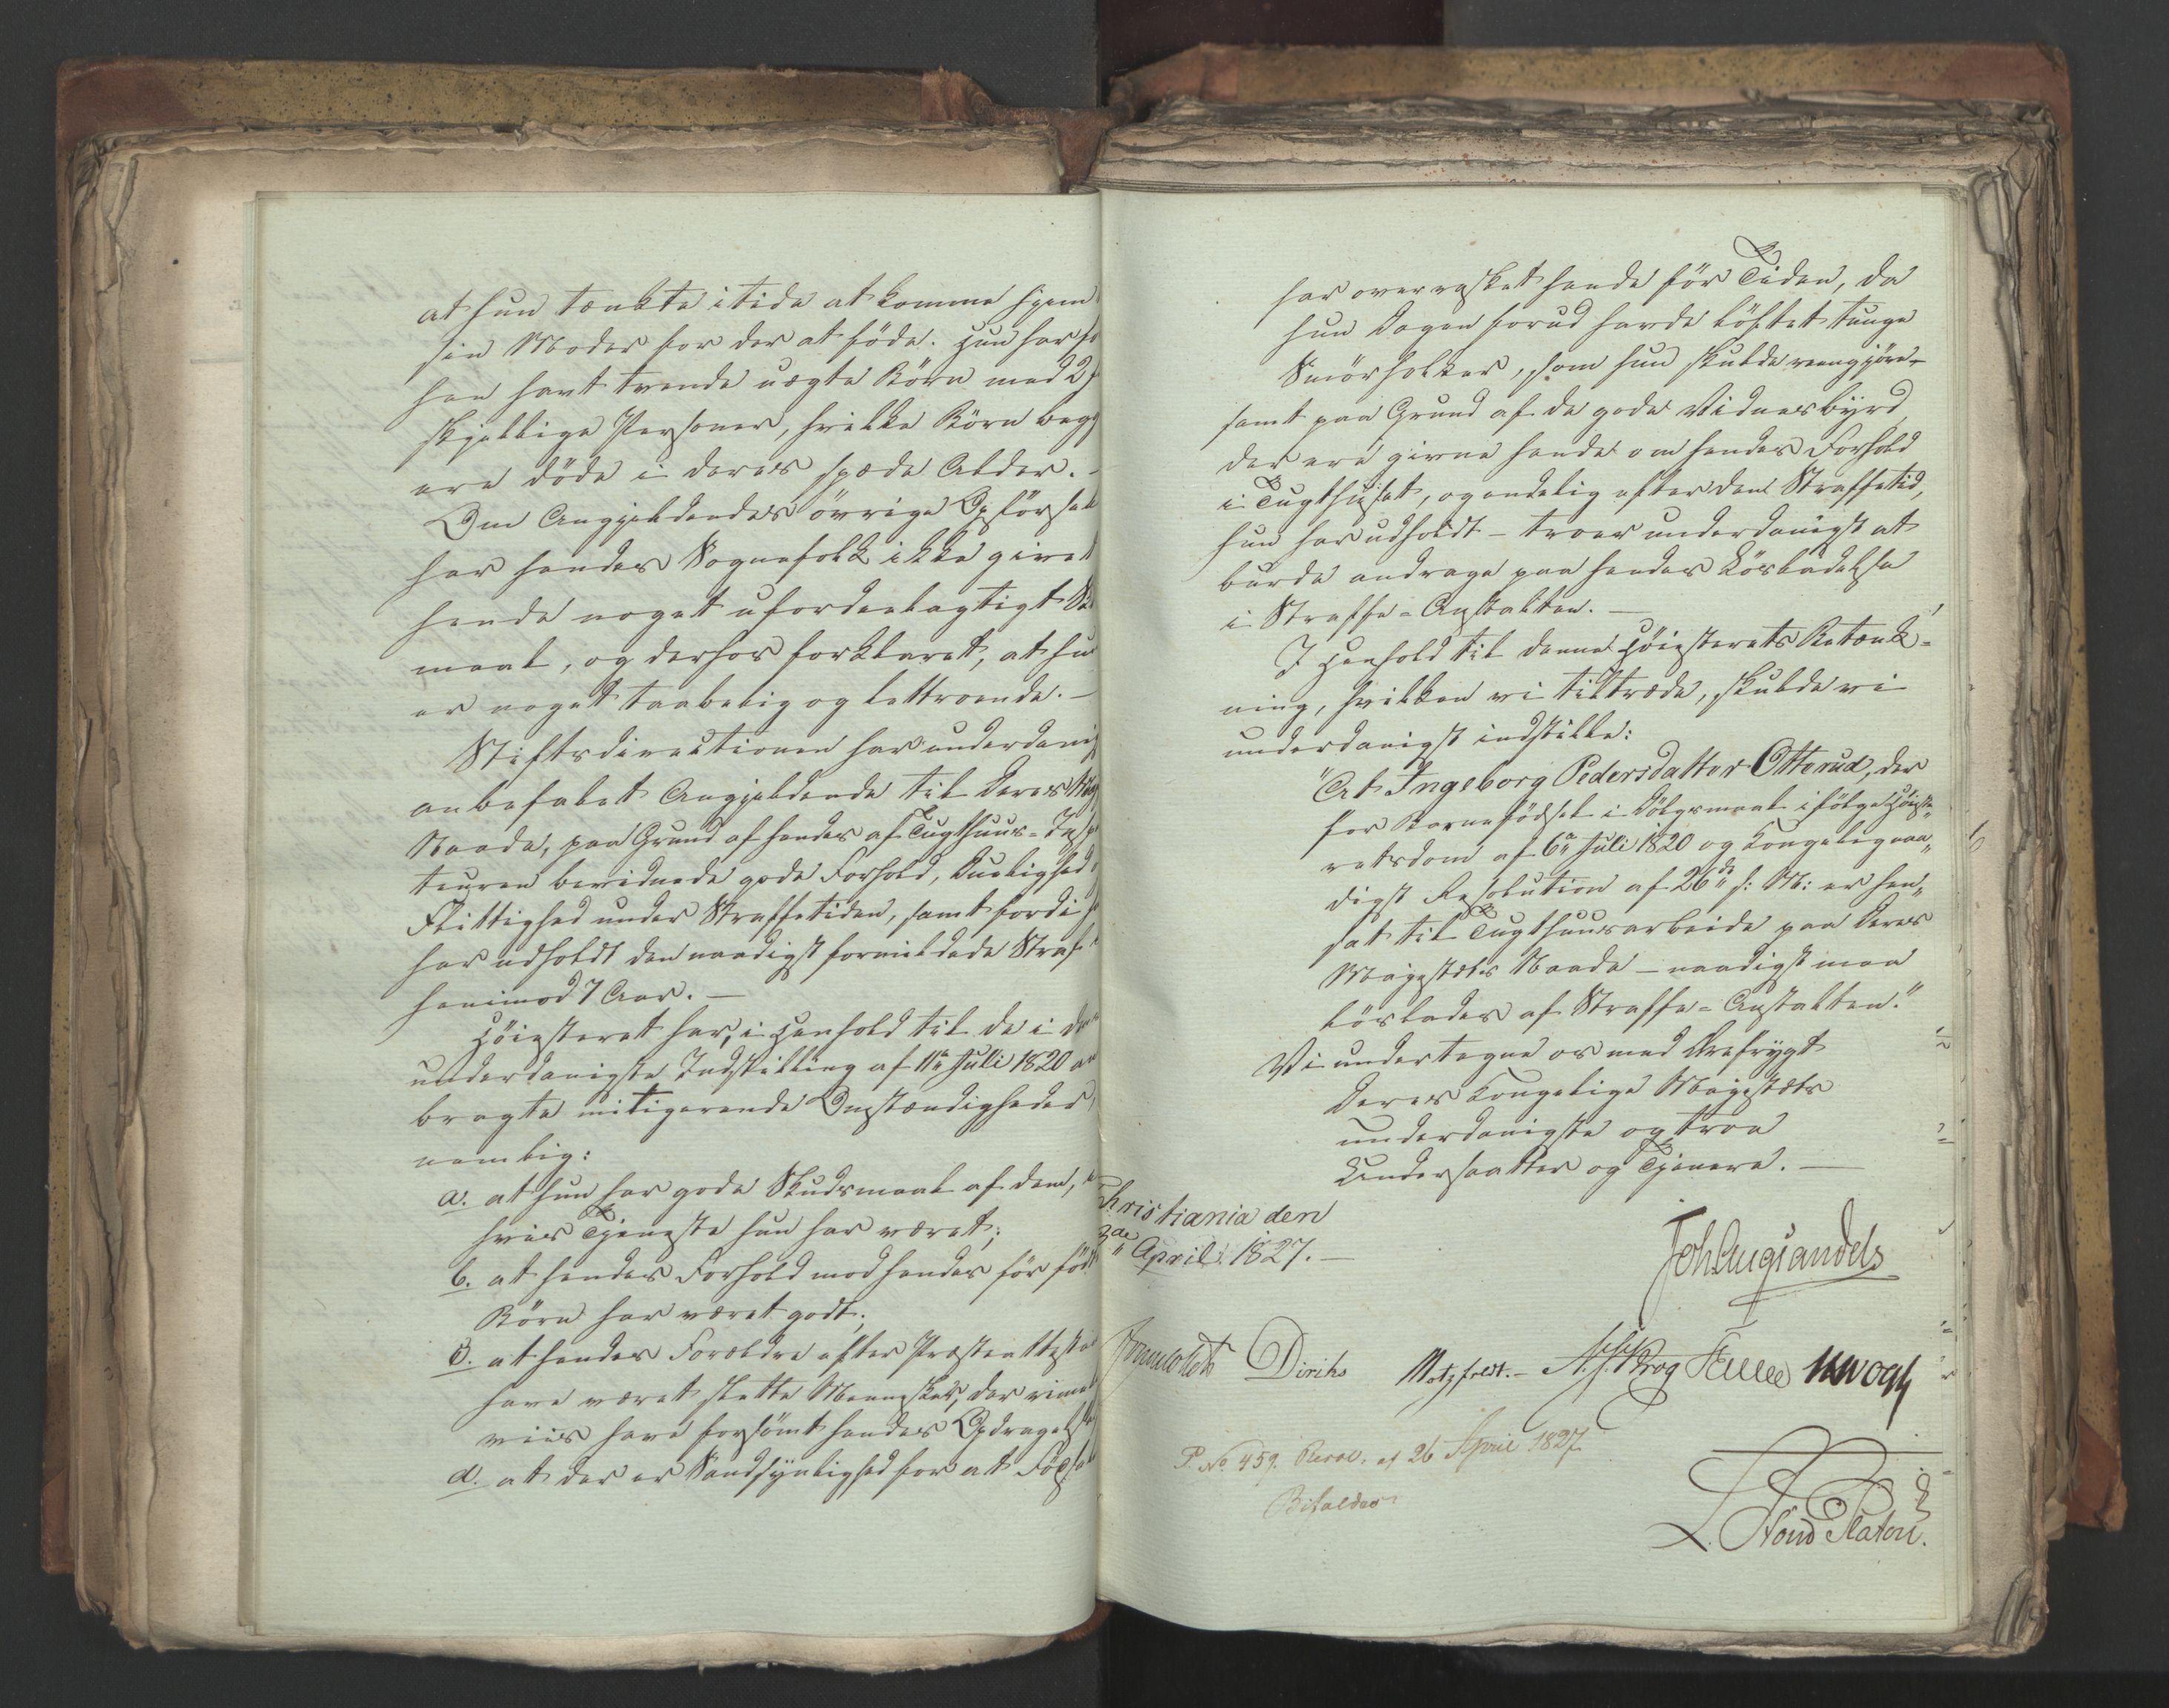 at hun tænkte itide at komme hjem
sin Moder for der at föde. Hun har
hen havt tvende uægte Börn med 2
skjellige Personer, hvilke Börn begg
ere döde i deres spæde Alder. -
Om Angjeldendes övrige Opförsel
har hendes Sognefolk ikke givet
hende noget ufordeelagtigt
maal, og derhos forklaret, at hun
er noget taabelig og lettroende. -
Stiftsdirectionen har underdanig
anbefalet Angjeldende til Deres
Naade, paa Grund af hendes af Tugthuus-Insp
teuren bevidnede gode Forhold, Duelighed
Flittighed under Straffetiden, samt fordi
har udholdt den naadigst formildede Straf
henimod 7 Aar. —
Höiesteret har, i Henhold til de i
underdanigste Indstilling af 11te Juli 1820 an
bragte mitigerende Omstændigheder,
nemlig:
a. at hun har gode Skudsmaal af dem, i
hvis Tjeneste hun har været;
b. at hendes Forhold mod hendes för föd
Börn har været godt;
c. at hendes Forældre efter Præsteattest
have været slette Mennesker, der rime
viis have forsömt hendes Opdragelse
d. at der er Sandsynlighed for at Födsel
har overrasket hende för Tiden, da
hun Dagen forud havde löftet tunge
Smörholker, som hun skulde reengjöre -
samt paa Grund af de gode Vidnesbyrd,
der ere givne hende om hendes Forhold
i Tugthuset, og endelig efter den Straffetid,
hun har udholdt - troer underdanigst at
burde andrage paa hendes Lösladelse
i Straffe-Anstalten. —
I Henhold til denne Höiesterets Betænk-
ning, hvilken vi tiltræde, skulde vi
underdanigst indstille:
"At Ingeborg Pedersdatter Otterud, der
for Barnefödsel i Dölgsmaal ifölge Höieste-
retsdom af 6te Juli 1820 og Kongelignaa-
digst Resolution af 26de s: M: er hen-
sat til Tugthuusarbeide paa Deres
Majestæts Naade - naadigst maa
löslades af Straffe-Anstalten."
Vi undertegne os med Ærefrygt
Deres Kongelige Majestæts
underdanigste og troe
Undersaatter og Tjenere. —
Christiania den
3de April 1827. —
Joh Aug Sandels
Diriks
Motzfeldt. -
Krog
JHVogt
P No 459. Resol. af 26 April 1827
Bifaldes
L. von Platen.